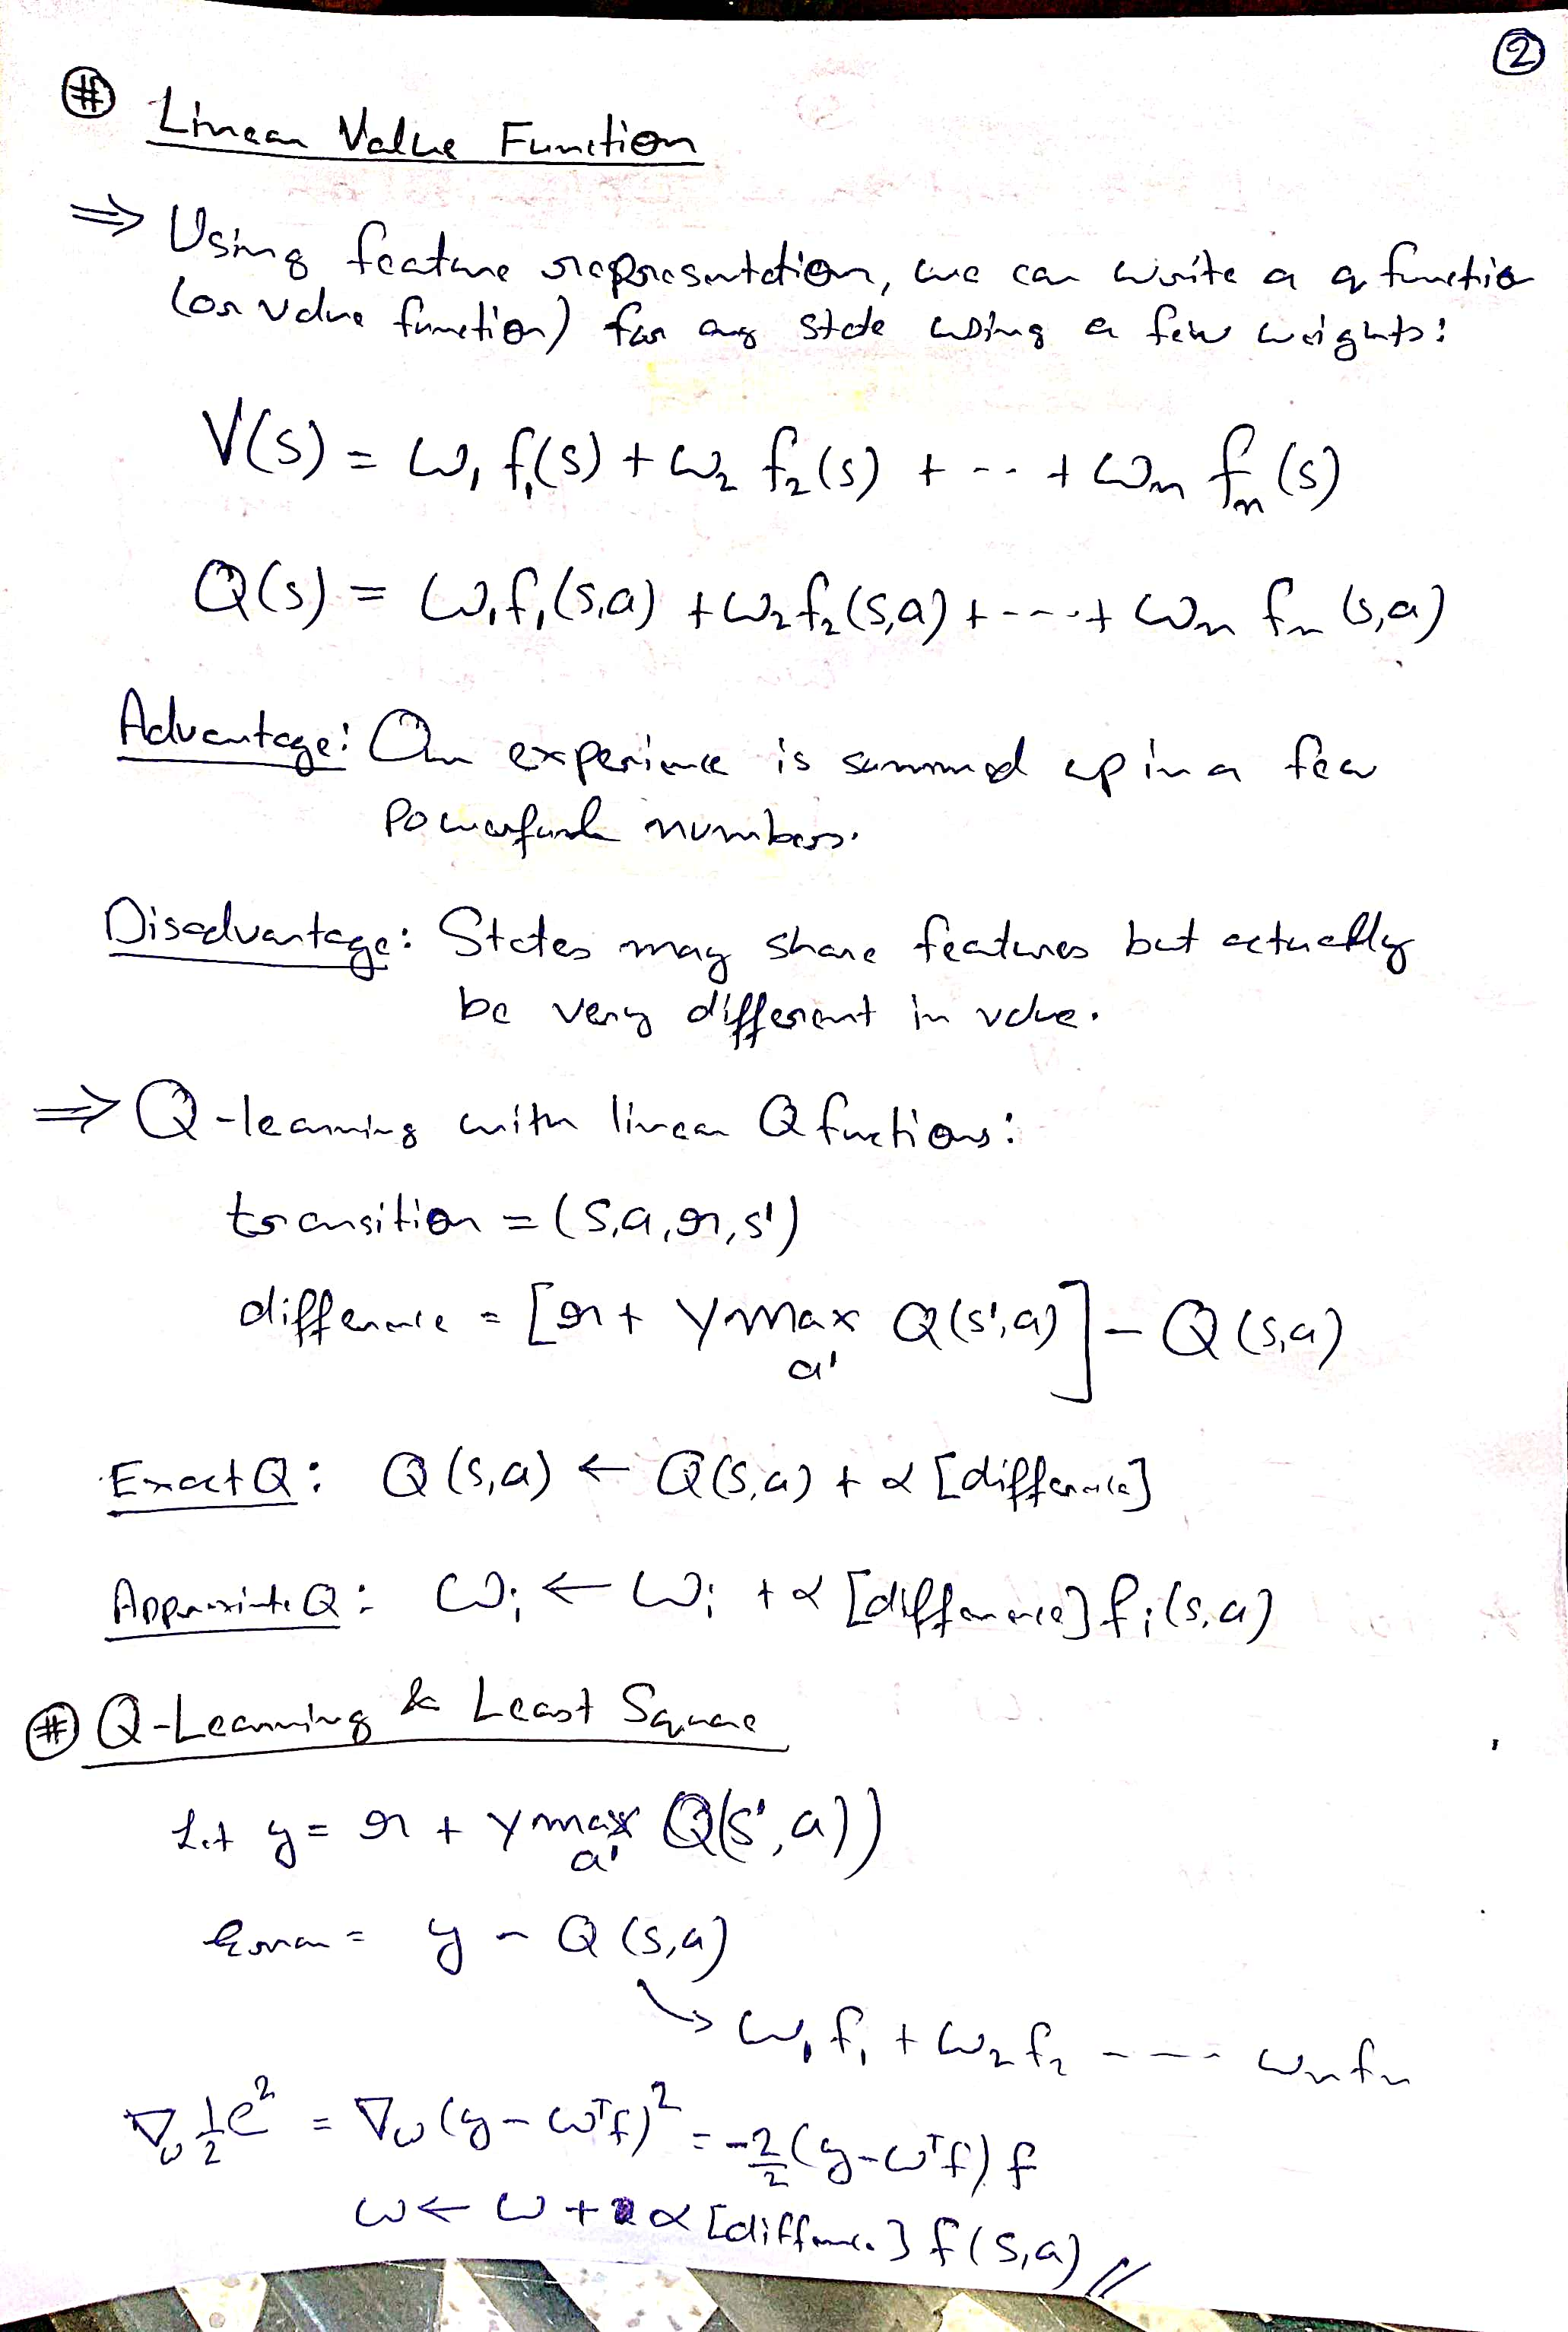 ②
# Linear Value Function
⇒ Using feature representation, we can write a q function
(or value function) for any state using a few weights:
V(s) = w₁ f₁(s) + w₂ f₂(s) + -- + wₙ fₙ(s)
Q(s) = w₁f₁(s,a) + w₂f₂(s,a) + ---+ wₙ fₙ (s,a)
Advantage: Our experience is summed up in a few
powerful numbers.
Disadvantage: States may share features but actually
be very different in value.
⇒ Q-learning with linear Q functions:
transition = (s,a,r,s')
difference = [r + γ max Q(s',a)] - Q(s,a)
a'
Exact Q: Q(s,a) ← Q(s,a) + α [difference]
Approximate Q: wᵢ ← wᵢ + α [difference] fᵢ(s,a)
# Q-Learning & Least Square
Let y = r + γ max Q(s',a))
a'
Error = y - Q(s,a)
↘ w₁f₁ + w₂f₂ ---- wₙfₙ
∇w ½e² = ∇w (y - wᵀf)² = -2/2 (y-wᵀf) f
w ← w + α [difference] f(s,a) //